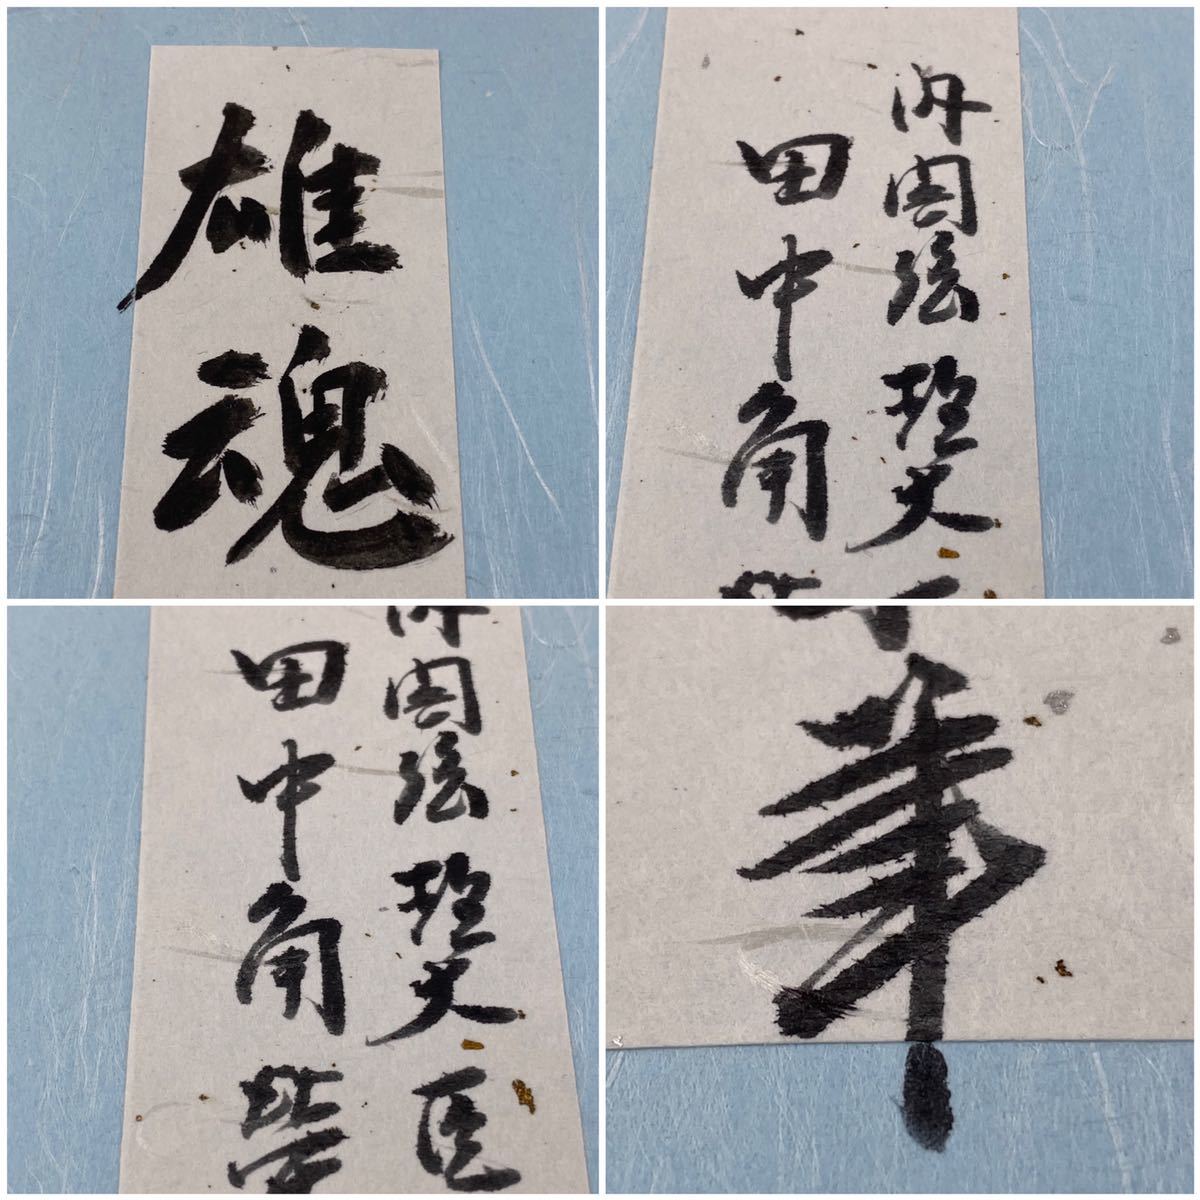 雄魂
内閣総理大
田中角
内閣総理大臣
田中角榮
筆